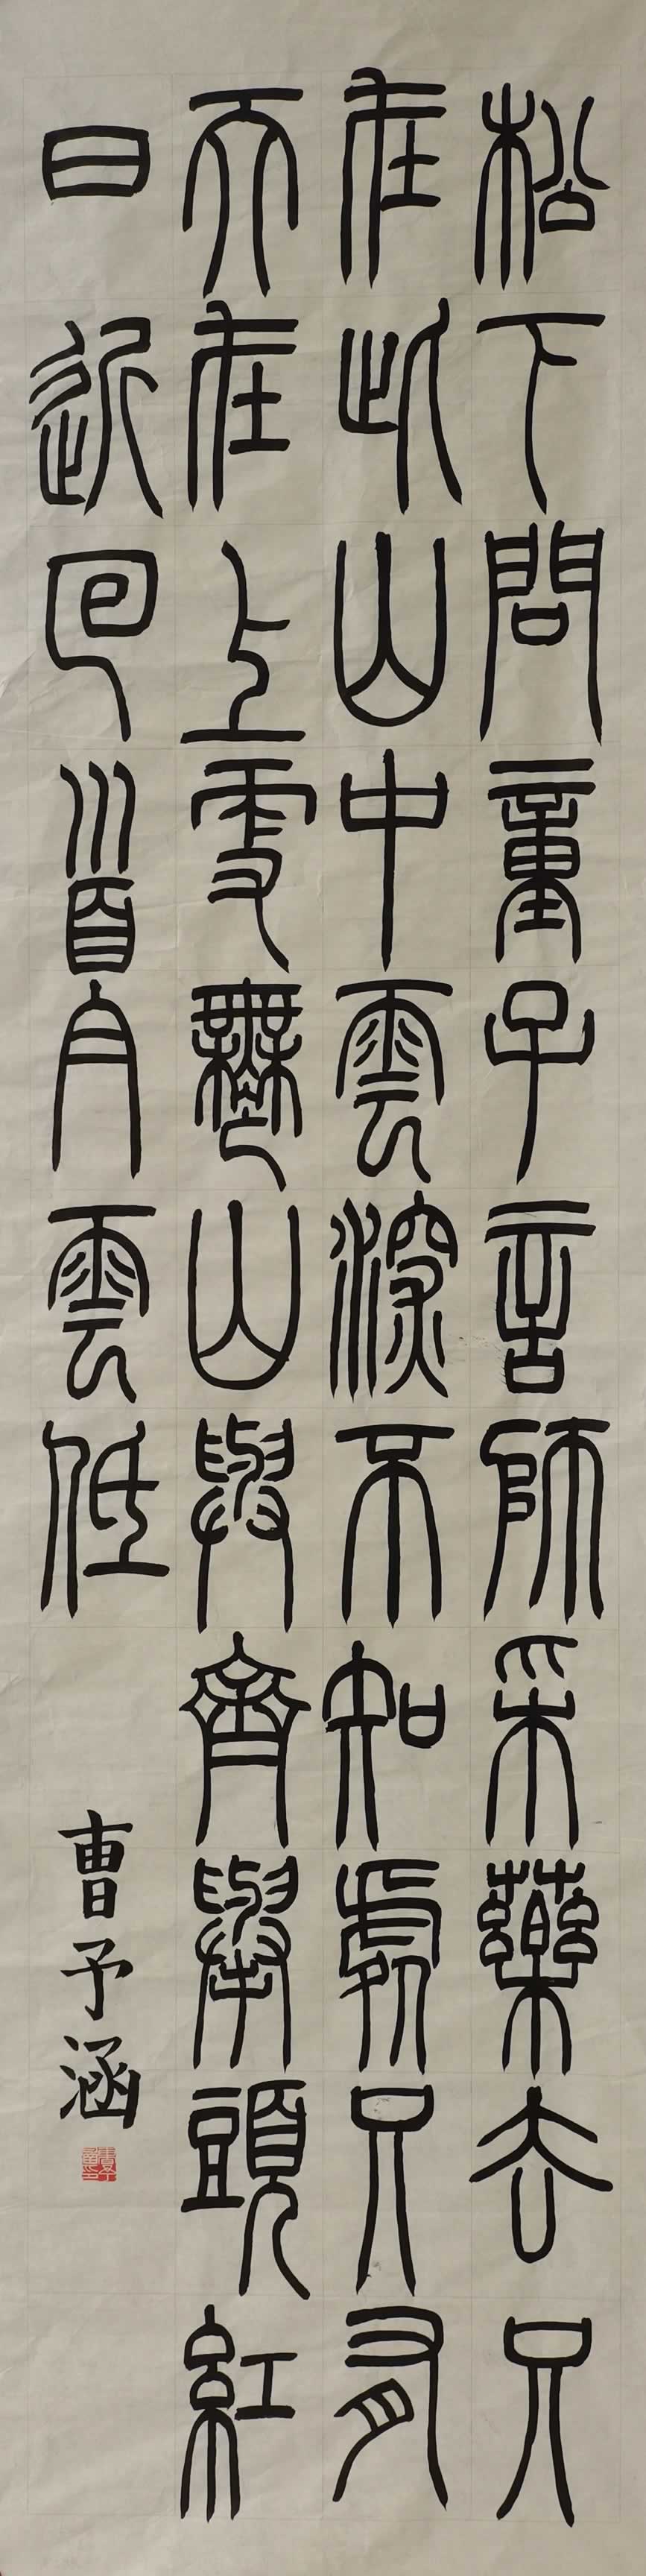 松下問童子言師采藥去只
在此山中雲深不知處只有
天在上更無山與齊舉頭紅
日近回首白雲低
曹予涵